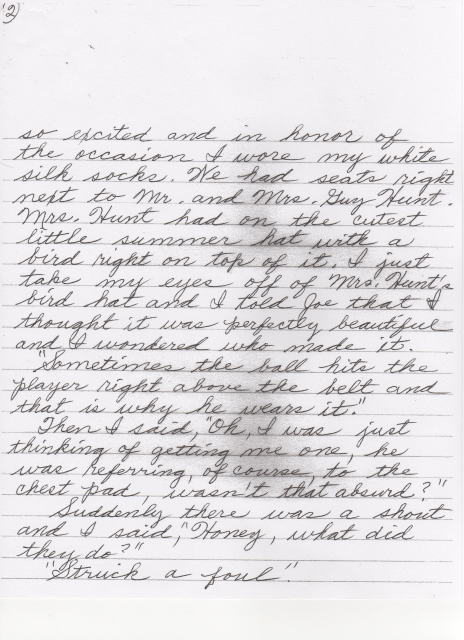 2)
so excited and in honor of
the occasion I wore my white
silk socks. We had seats right
next to Mr. and Mrs. Guy Hunt.
Mrs. Hunt had on the cutest
little summer hat with a
bird right on top of it. I just
take my eyes off of Mrs. Hunt's
bird hat and I told Joe that I
thought it was perfectly beautiful
and I wondered who made it.
"Sometimes the ball hits the
player right above the belt and
that is why he wears it."
Then I said, "Oh, I was just
thinking of getting me one, he
was referring, of course, to the
chest pad, wasn't that absurd?"
Suddenly there was a shout
and I said, "Honey, what did
they do?"
"Struck a foul".